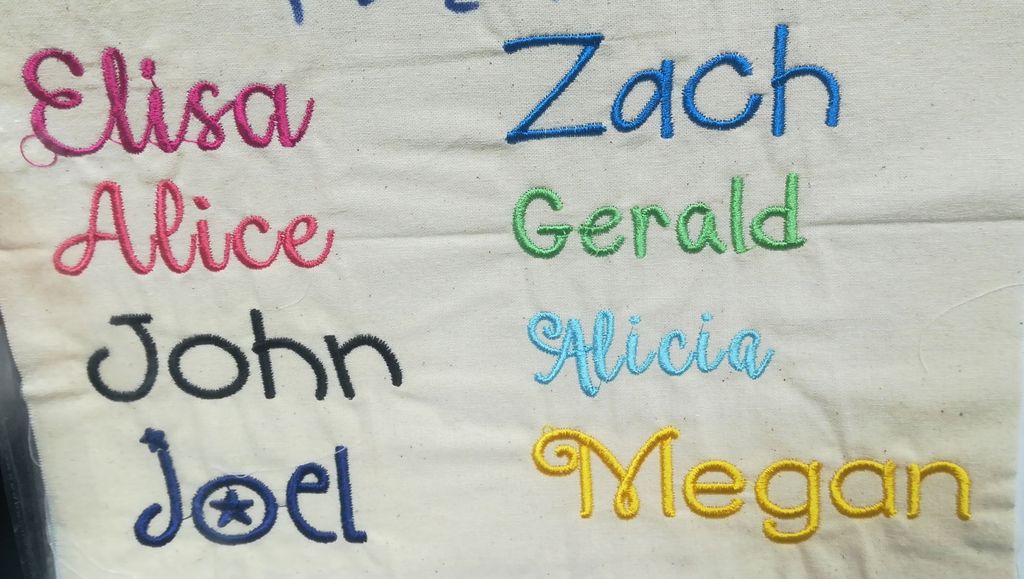 Elisa
Zach
Alice
Gerald
John
Alicia
Joel
Megan